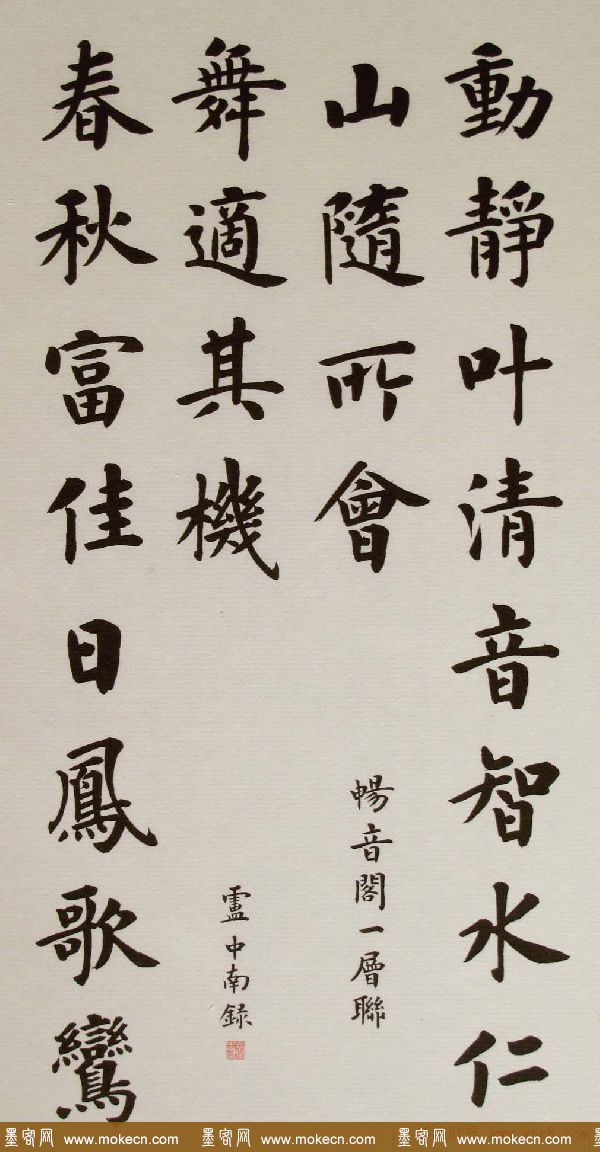 動靜叶清音智水仁
山隨所會
暢音閣一層聯
春秋富佳日鳳歌鸞
舞適其機
盧中南録
墨客网 www.mokecn.com 墨客网 www.mokecn.com 墨客网 www.mokecn.com